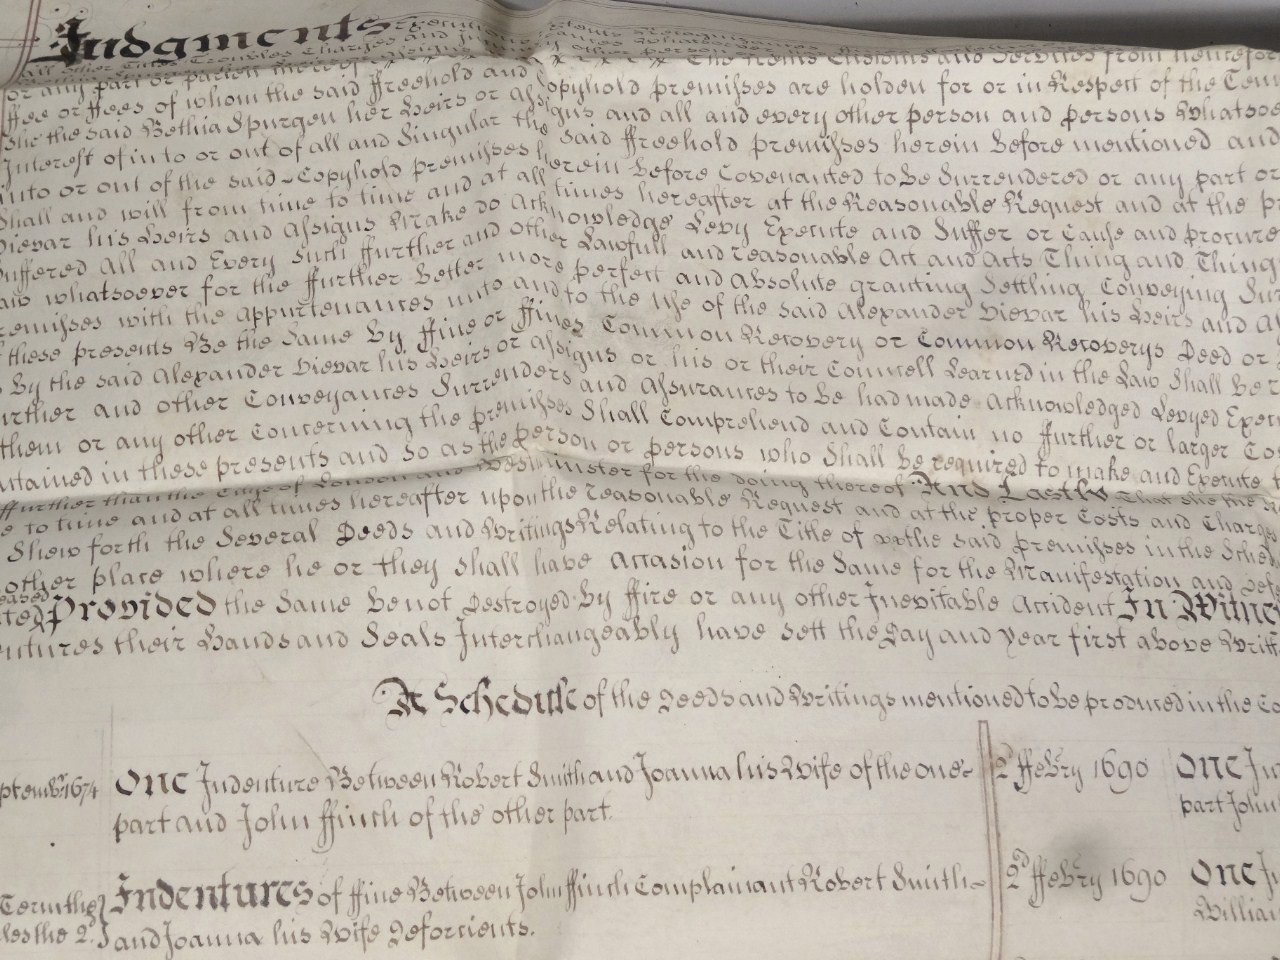 Judgments
or any part or parcell thereof The Rents Customs and Services from henceforth
ffee or ffees of whom the said ffreehold and Copyhold premisses are holden for or in Respect of the
She the said Bethia Spurgeu her Heirs or Assigns and all and every other person and persons Whatso
Interest of in to or out of all and Singular the said ffreehold premisses herein before mentioned and
into or out of the said Copyhold premisses herein before Covenanted to be Surrendered or any part or
Shall and will from time to time and at all times hereafter at the Reasonable Request and at the
Dievar his Heirs and Assigns Make do Acknowledge Levy Execute and Suffer or Cause and procure
Suffered All and Every Such ffurther and other Lawfull and reasonable Act and Acts Thing and Things
whatsoever for the ffurther better more perfect and Absolute granting Settling Conveying
premisses with the appurtenances unto and to the use of the said Alexander Dievar his Heirs and
these presents Be the Same By ffine or ffines Common Recovery or Common Recoverys Deed or
By the said Alexander Dievar his Heirs or Assigns or his or their Councell Learned in the Law Shall be
urther and other Conveyances Surrenders and Assurances to be had made Acknowledged Levyed
them or any other Concerning the premisses Shall Comprehend and Contain no ffurther or larger
ntained in these presents and so as the person or persons who Shall be required to make and Execute
ffurther than the Citys of London and Westminster for the doing thereof And Lastly That She the
e to time and at all times hereafter upon the reasonable Request and at the proper Costs and Charges
Shew forth the Several Deeds and Writings Relating to the Title of the said premisses in the
other place where he or they shall have Occasion for the Same for the Manifestation and
Provided the Same be not Destroyed By ffire or any other Inevitable Accident In Witne
ntures their Hands and Seals Interchangeably have sett the Day and year first above Writt
A Schedule of the Deeds and Writings mentioned to be produced in the Co
ptembr 1674 One Indenture Between Robert Smith and Joanna his Wife of the one
part and John ffinch of the other part.
2d ffebry 1690 One In
part John
Term the Indentures of ffine Between John ffinch Complainant Robert Smith
les the 2d and Joanna his Wife Deforcients.
2d ffebry 1690 One I
William